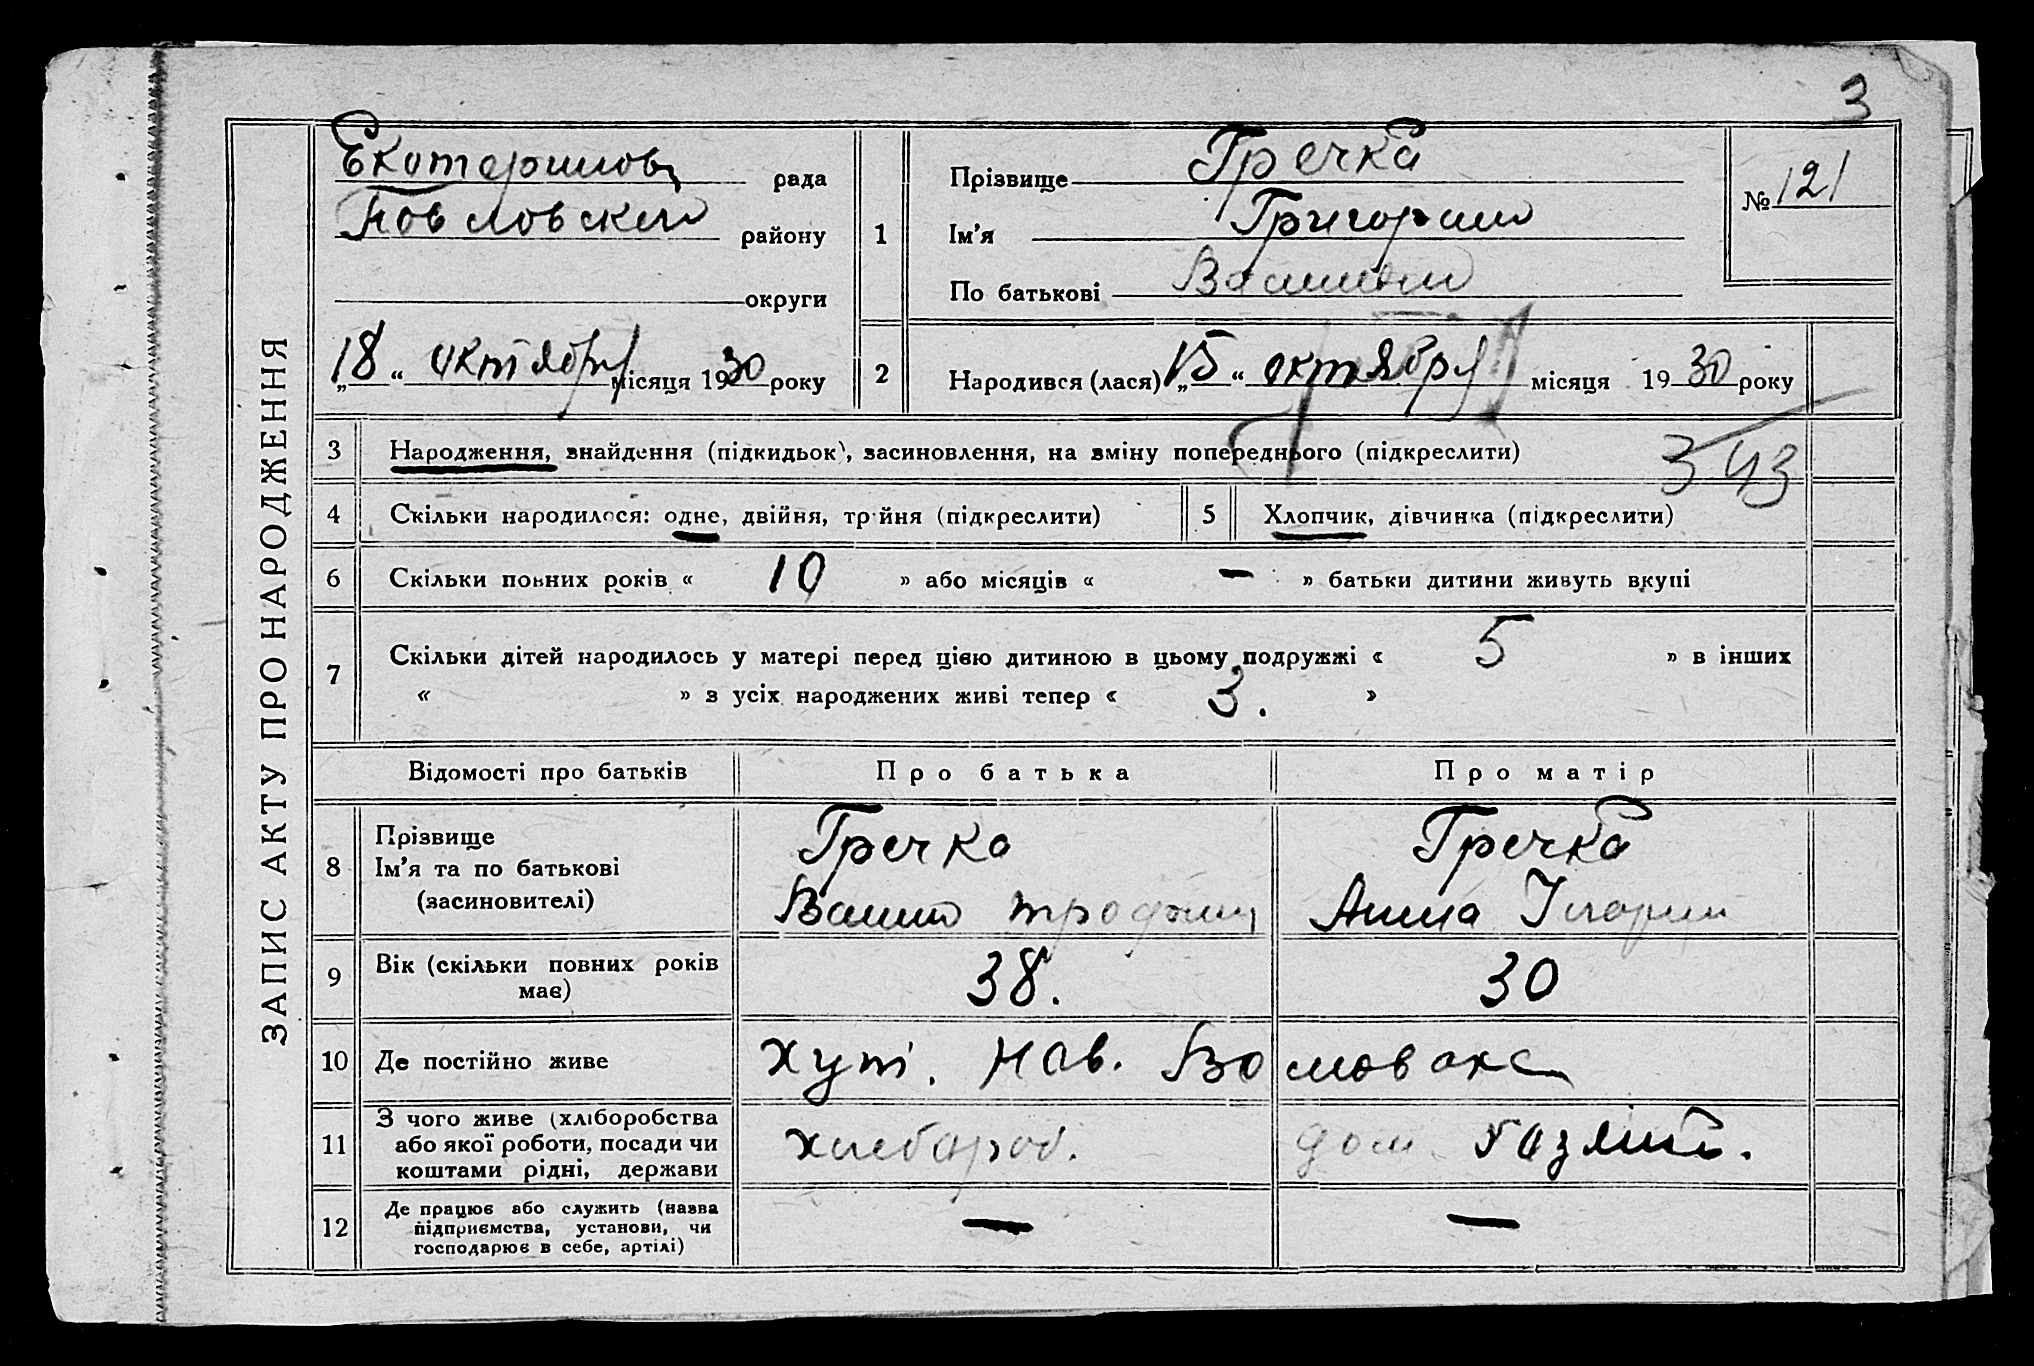 3
ЗАПИС АКТУ ПРО НАРОДЖЕННЯ
Екатеринов рада
району
округи
„18“ октября місяця 1930 року
1
Прізвище Гречка
Ім'я Григорий
По батькові
№ 121
2
Народився (лася) „15“ октября місяця 1930 року
3 Народження, знайдення (підкидьок), засиновлення, на зміну попереднього (підкреслити)
343
4 Скільки народилося: одне, двійня, трійня (підкреслити)
5 Хлопчик, дівчинка (підкреслити)
6 Скільки повних років « 10 » або місяців « – » батьки дитини живуть вкупі
7 Скільки дітей народилось у матері перед цією дитиною в цьому подружжі « 5 » в інших
« » з усіх народжених живі тепер « 3. »
Відомості про батьків Про батька Про матір
8 Прізвище
Ім'я та по батькові
(засиновителі)
Гречка
Гречка
Анна
9 Вік (скільки повних років
має)
38. 30
10 Де постійно живе хут. Нов.
11 З чого живе (хліборобства
або якої роботи, посади чи
коштами рідні, держави
хлебороб. дом. хазяйс.
12 Де працює або служить (назва
підприємства, установи, чи
господарює в себе, артілі)
— —